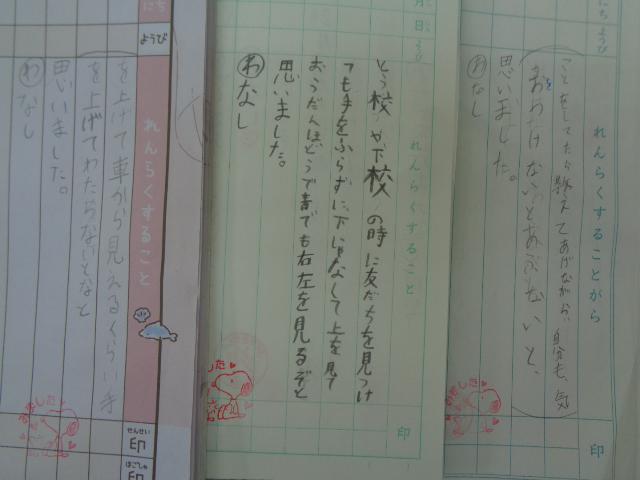 にち ようび
れんらくすることがら
ことをしてたら教えてあげながら、自分も、気
ないとあぶないと、
思いました。
わ なし
印
月 日 ようび
れんらくすること
とう校や下校の時に友だちを見つけ
ても手をふらずに、下じゃなくして上を見て
おうだんほどうで青でも右左を見るぞと
思いました。
わ なし
印
にち
ようび
れんらくすること
を上げて車から見えるくらい手
を上げてわたらないとなと
思いました。
わ なし
せんせい
印
ほごしゃ
印